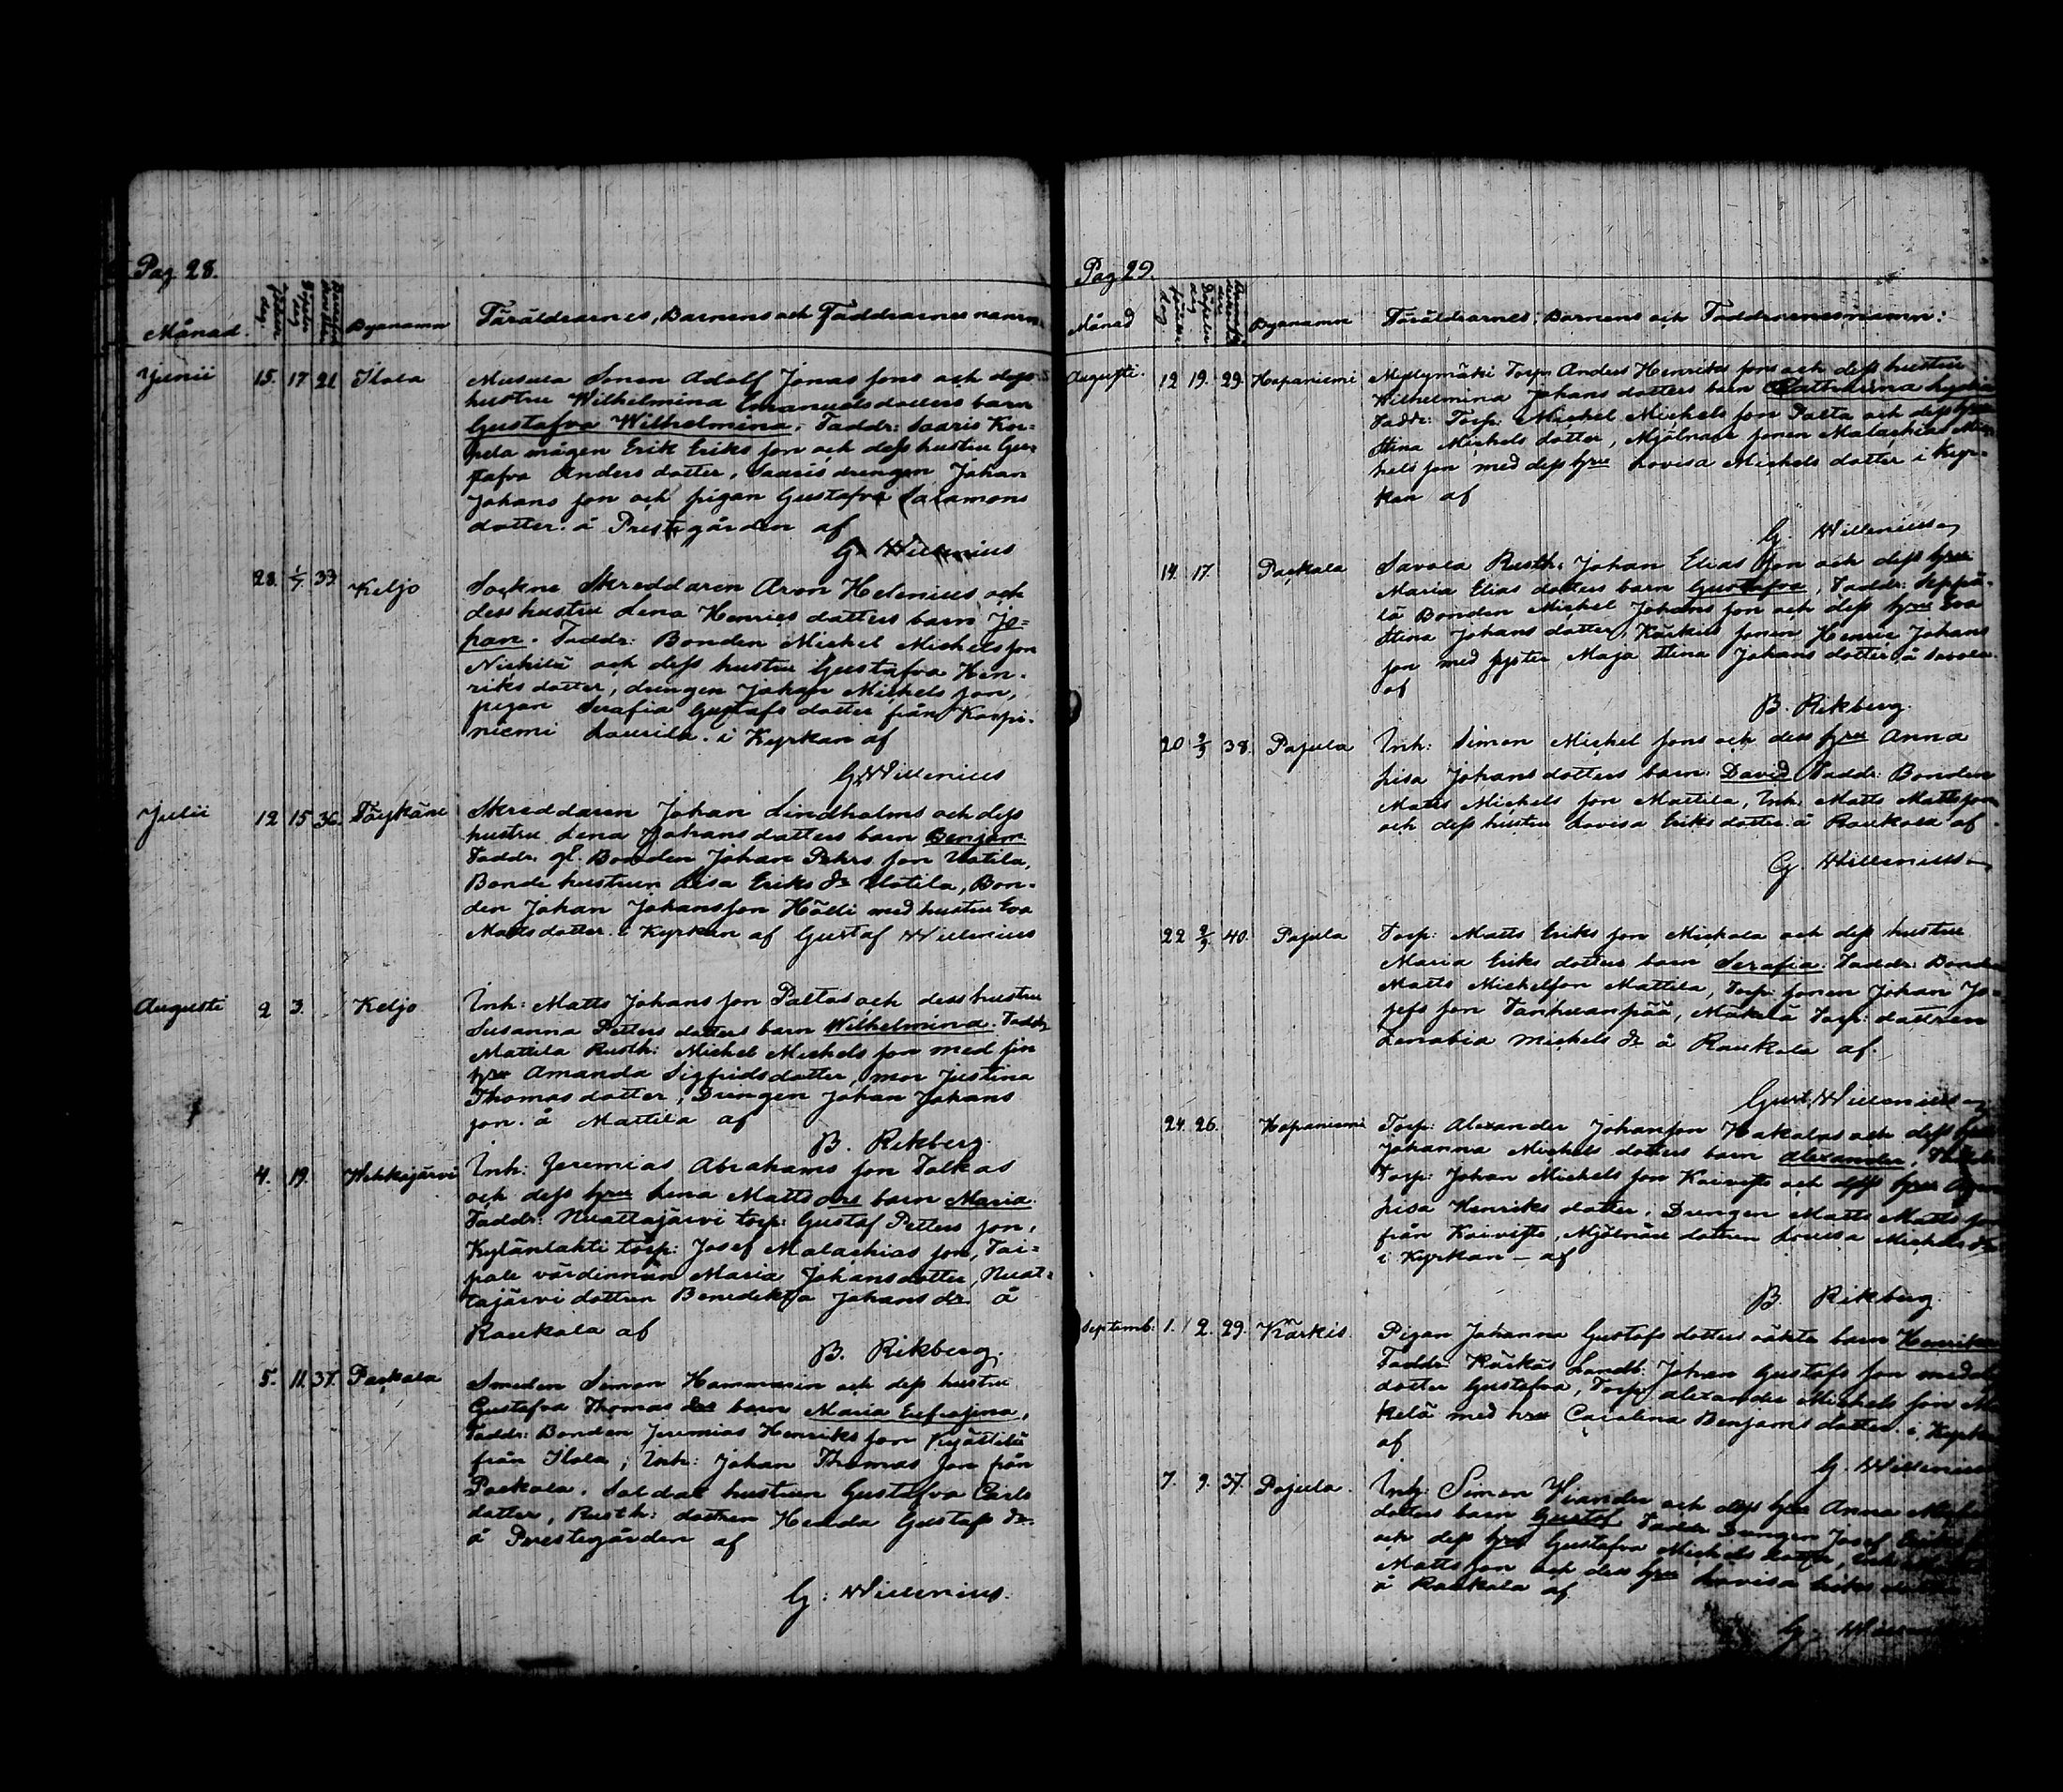 Pag 28.
Månad. Födelse dag. Döpelse dag Byanamn Föräldrarnes, Barnens och Faddrarnes namn.
Junii 15. 17. 21 Ilola Musula Sonen Adolf Jonas sons och dess
hustru Wilhelmina Emanuelsdotters barn
Gustafva Wilhelmina. Faddr: Saaris Kor=
pela mågen Erik Eriks son och dess hustru Gus
tafva Anders dotter, Saaris drengen Johan
Johans son och pigan Gustafva Salamons
dotter. å Prestgården af
G. Willenius
28. 1/7. 33 Keljo Sockne Skreddaren Aron Helenius och
dess hustru Lena Henrics dotters barn Jo=
han. Faddr: Bonden Mickel Michelsson
Nickilä och dess hustru Gustafva Hen-
riks dotter, drengen Johan Michels son,
pigan Serafia Gustafs dotter från Kaspi-
niemi Laurila. i Kyrkan af
G. Willenius
Julii 12 15 36. Skreddaren Johan Lindholms och dess
hustru Lena Johans dotters barn Benjam.
Faddr. gl. Bonden Johan Pehrs son Uotila,
Bonde hustrun Lisa Eriks dr Uotila, Bon-
den Johan Johansson Hölli med hustru Eva
Matts dotter. i Kyrkan af Gustaf Willenius
Augusti 2 3. Keljo Inh: Matts Johans son Paltas och dess hustru
Susanna Petters dotters barn Wilhelmina. Faddr
Mattila Rusth: Michel Michels son med sin
hru Amanda Sigfridsdotter, mor Justina
Thomas dotter, Drengen Johan Johans
son. å Mattila af
B. Rikberg.
4. 19. Wehkajärvi Inh: Jeremias Abrahams son Talkas
och dess hru Lena Matts drs barn Maria.
Faddr: Nuattajärvi torp: Gustaf Petters son,
Kylänlahti torp: Josef Malachias son, Tai=
pale värdinnan Maria Johansdotter, Nuat=
tajärvi dottren Benedikta Johans dr. å
Raukola af
B. Rikberg.
5. 11. 37. Paskala Smeden Simon Hammarin och dess hustru
Gustafva Thomas drs barn Maria Eufrosina,
Faddr: Bonden Jeremias Henriks son
från Ilola, Inh: Johan Thomas son från
Paskala. Soldat hustrun Gustafva Carls
dotter, Rusth: dottren Hedda Gustafs dr.
å Prestegården af
G. Willenius.
Pag 29.
Månad Byanamn Föräldrarnes, Barnens och Faddrarnesnamn:
Augusti. 12 19. 29. Hapaniemi Myllymäki Torp. Anders Henriks sons och dess hustru
Wilhelmina Johans dotters barn Catharina Lydia
Faddr: Torp: Michel Michels son Palta och dess hru
Stina Michels dotter, Mjölnare sonen Malachias Mic
hels son med dess hru Lovisa Michels dotter i Kyr-
kan af
G. Willenius
14. 17. Paskala Savola Rusth: Johan Elias son och dess hru
Maria Elias dotters barn Gustafva, Faddr: Seppä-
lä Bonden Michel Johans son och dess hru Eva
Stina Johans dotter, Kärkis sonen Henric Johans
son med syster Maja Stina Johans dotter, å Savola.
af
B. Rikberg.
20 2/9 38. Pajula Inh: Simon Michel sons och dess hru Anna
Lisa Johans dotters barn David Faddr: Bonden
Matts Michels son Mattila, Inh. Matts Matts son
och dess hustru Lovisa Eriks dotter. å Raukola af
G Willenius
22 2/9 40. Pajula Torp: Matts Eriks son Mickola och dess hustru
Maria Eriks dotters barn Serafia. Faddr: Bonden
Matts Michelson Mattila, Torp: sonen Johan Jo=
sefs son Tanhuanpää, Mäkelä Torp: dottren
Zenobia Michels dr å Raukola af.
Gust. Willenius
24. 26. Hapaniemi Torp: Alexander Johanson Hakalas och dess hru
Johanna Michels dotters barn Alexander,
Torp: Johan Michels son Koivisto och dess hru
Lisa Henriks dotter. Drengen Matts Matts son
från Koivisto, Mjölnare dottren Lovisa Michels dr
i Kyrkan - af
B. Rikberg.
Septemb. 1. 2. 29. Kärkis. Pigan Johanna Gustafs dotters oäkta barn
Faddr. Landb: Johan Gustafs son med
dotter Gustafva, Torp: Alexander Michels son
kelä med hru Carolina Benjams dotter. i Kyrkan
af
G. Willenius
7. 9. 37. Pajula. Inh: Simon och dess hru Anna
dotters barn Gustaf Faddr. Drengen Josef
och dess hru Gustafva Michels dotter,
Matts son och dess hru Lovisa Eriks
å Raukola af
G.